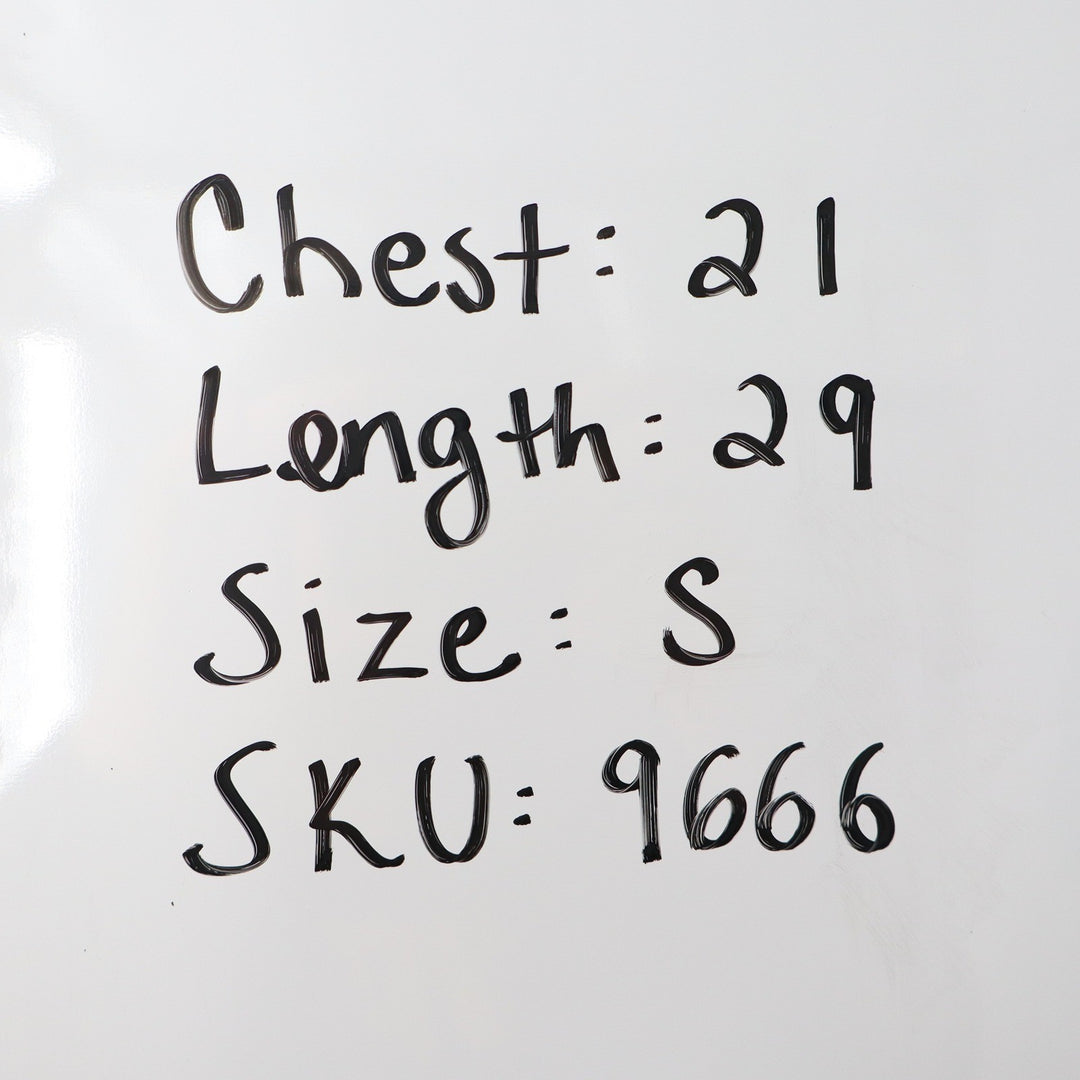 Chest: 21
Length: 29
Size: S
SKU: 9666